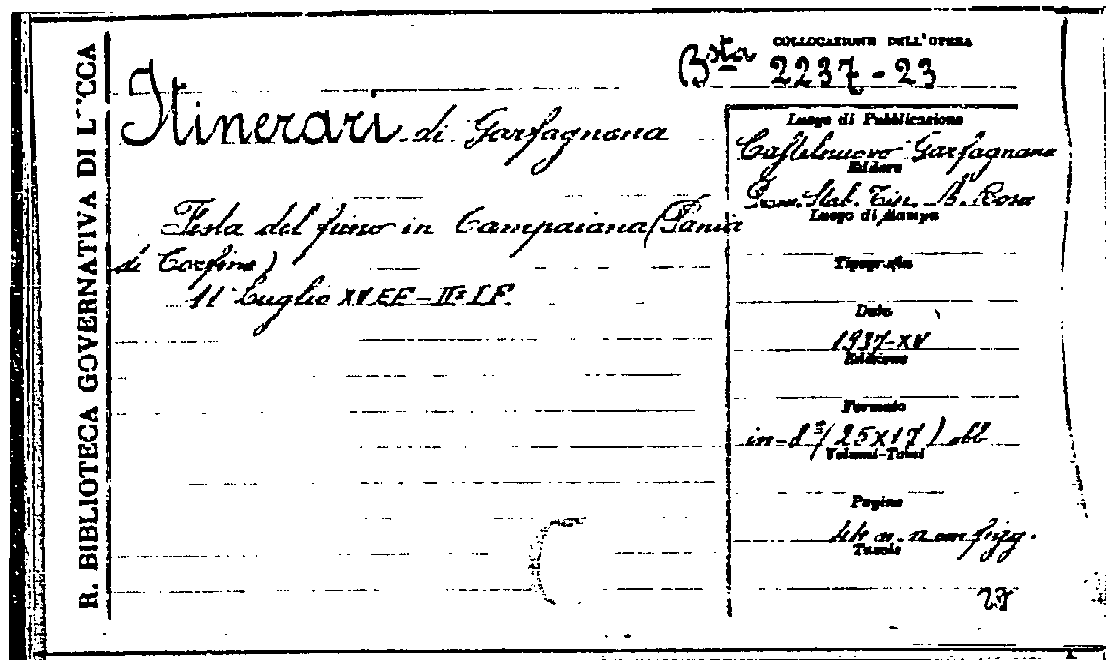 R. BIBLIOTECA GOVERNATIVA DI LUCCA
COLLOCAZIONE DELL'OPERA
Bsta 2237-23
Itinerari di Garfagnana
Festa del fieno in Campaiana (Pania
di Corfino)
11 Luglio XV E.F. - II° I.F.
Luogo di Pubblicazione
Castelnuovo Garfagnana
Editore
Stab. Tip. A. Rosa
Luogo di Stampa
Tipografia
Data
1937-XV
Edizione
Formato
in-8° (25x17) obl
Volumi-Tomi
Pagine
44 n. n. con figg.
Tavole
27